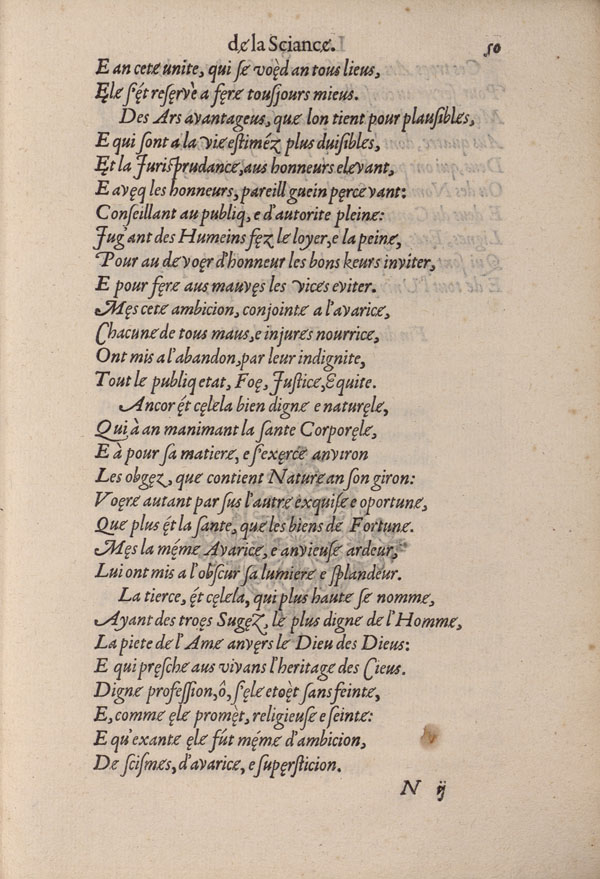 de la Sciance. 50
E an cete unite, qui se voęd an tous lieus,
Ęle s'ęt resęrve a fęre tousjours mieus.
Des Ars avantageus, que lon tient pour plausibles,
E qui sont a la vie estiméz plus duisibles,
Ęt la Jurisprudance, aus honneurs elevant,
E avęq les honneurs, pareil l guein pęrcevant:
Conseillant au publiq, e d'autorite pleine:
Jug'ant des Humeins fęz le loyer, e la peine,
Pour au devoęr d'honneur les bons keurs inviter,
E pour fęre aus mauvęs les vices eviter.
Męs cete ambicion, conjointe a l'avarice,
Chacune de tous maus, e injures nourrice,
Ont mis a l'abandon, par leur indignite,
Tout le publiq etat, Foę, Justice, Equite.
Ancor ęt cęlela bien digne e naturęle,
Qui à an manimant la sante Corporęle,
E à pour sa matiere, e s'exęrce anviron
Les obgęz, que contient Nature an son giron:
Voęre autant par sus l'autre exquise e oportune,
Que plus ęt la sante, que les biens de Fortune.
Męs la méme Avarice, e anvieuse ardeur,
Lui ont mis a l'obscur sa lumiere e splandeur.
La tierce, ęt cęlela, qui plus haute se nomme,
Ayant des troęs Sugęz, le plus digne de l'Homme,
La piete de l'Ame anvęrs le Dieu des Dieus:
E qui pręsche aus vivans l'heritage des Cieus.
Digne profession, ô, s'ęle etoęt sans feinte,
E, comme ęle promęt, religieuse e seinte:
E qu'exante ęle fút méme d'ambicion,
De scismes, d'avarice, e supęrsticion.
N ij